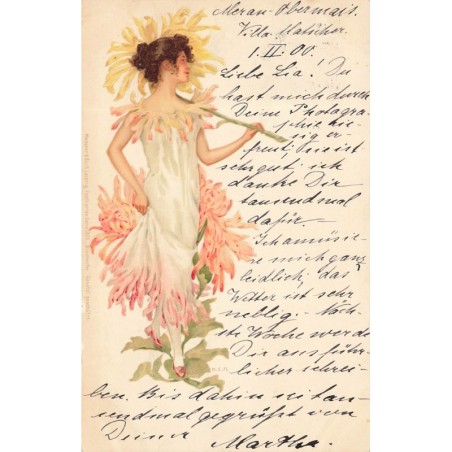 Meran-Obermais.
Villa Matscher.
1.II.00.
Liebe Lia! Du
hast mich durch
Deine Photogra-
phie rie-
sig er-
freut, sie ist
sehr gut ich
danke Dir
tausendmal
dafür.
Ich amüsie-
re mich ganz
leidlich, das
Wetter ist sehr
neblig. - Näch-
ste Woche werde
Dir ausführ-
licher schrei-
ben. Bis dahin sei tau-
sendmal gegrüßt von
Deiner Martha.